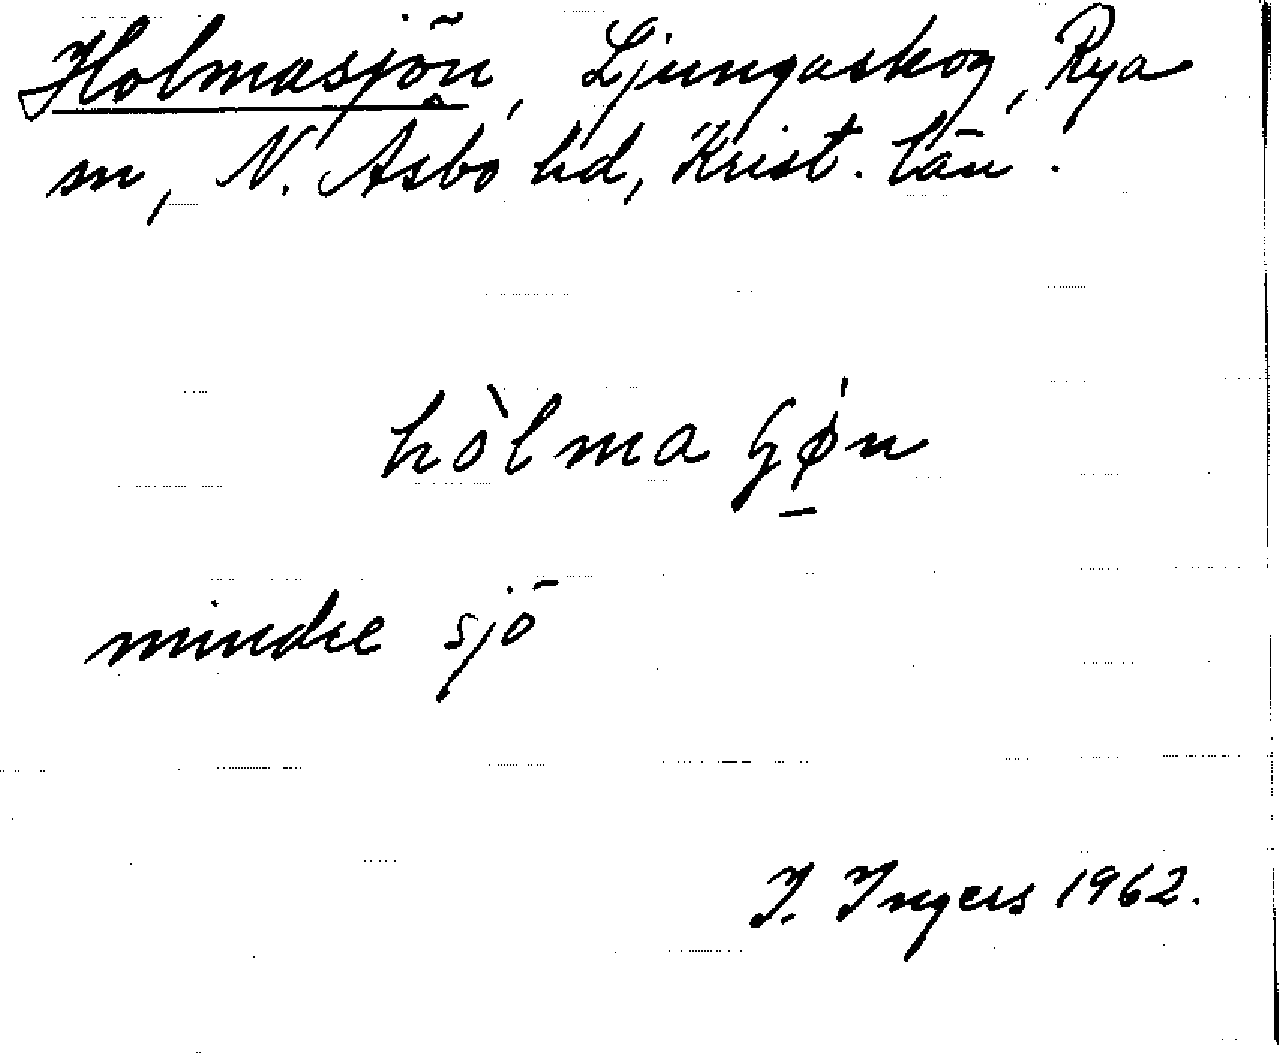 Holmasjön, Ljungaskog, Rya
sn, N. Åsbo hd, Krist. län.
hòlmaɧǿ̱n
mindre sjö
I. Ingers 1962.